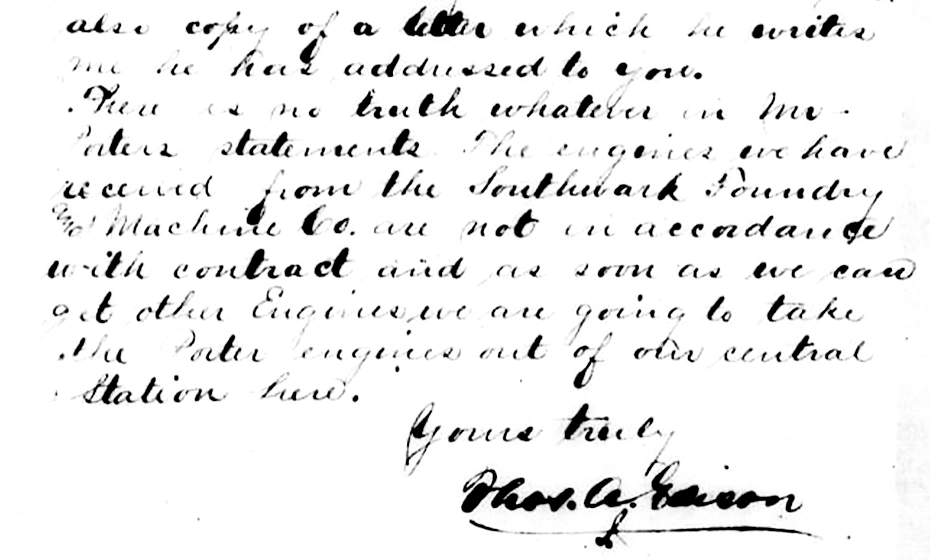 also copy of a letter which he writes
me he has addressed to you.
There is no truth whatever in Mr.
Porters statements The engines we have
received from the Southwark Foundry
& Machine Co. are not in accordance
with contract and as soon as we can
get other Engines we are going to take
the Porter engines out of our central
Station here.
Yours truly
Thos. A. Edison